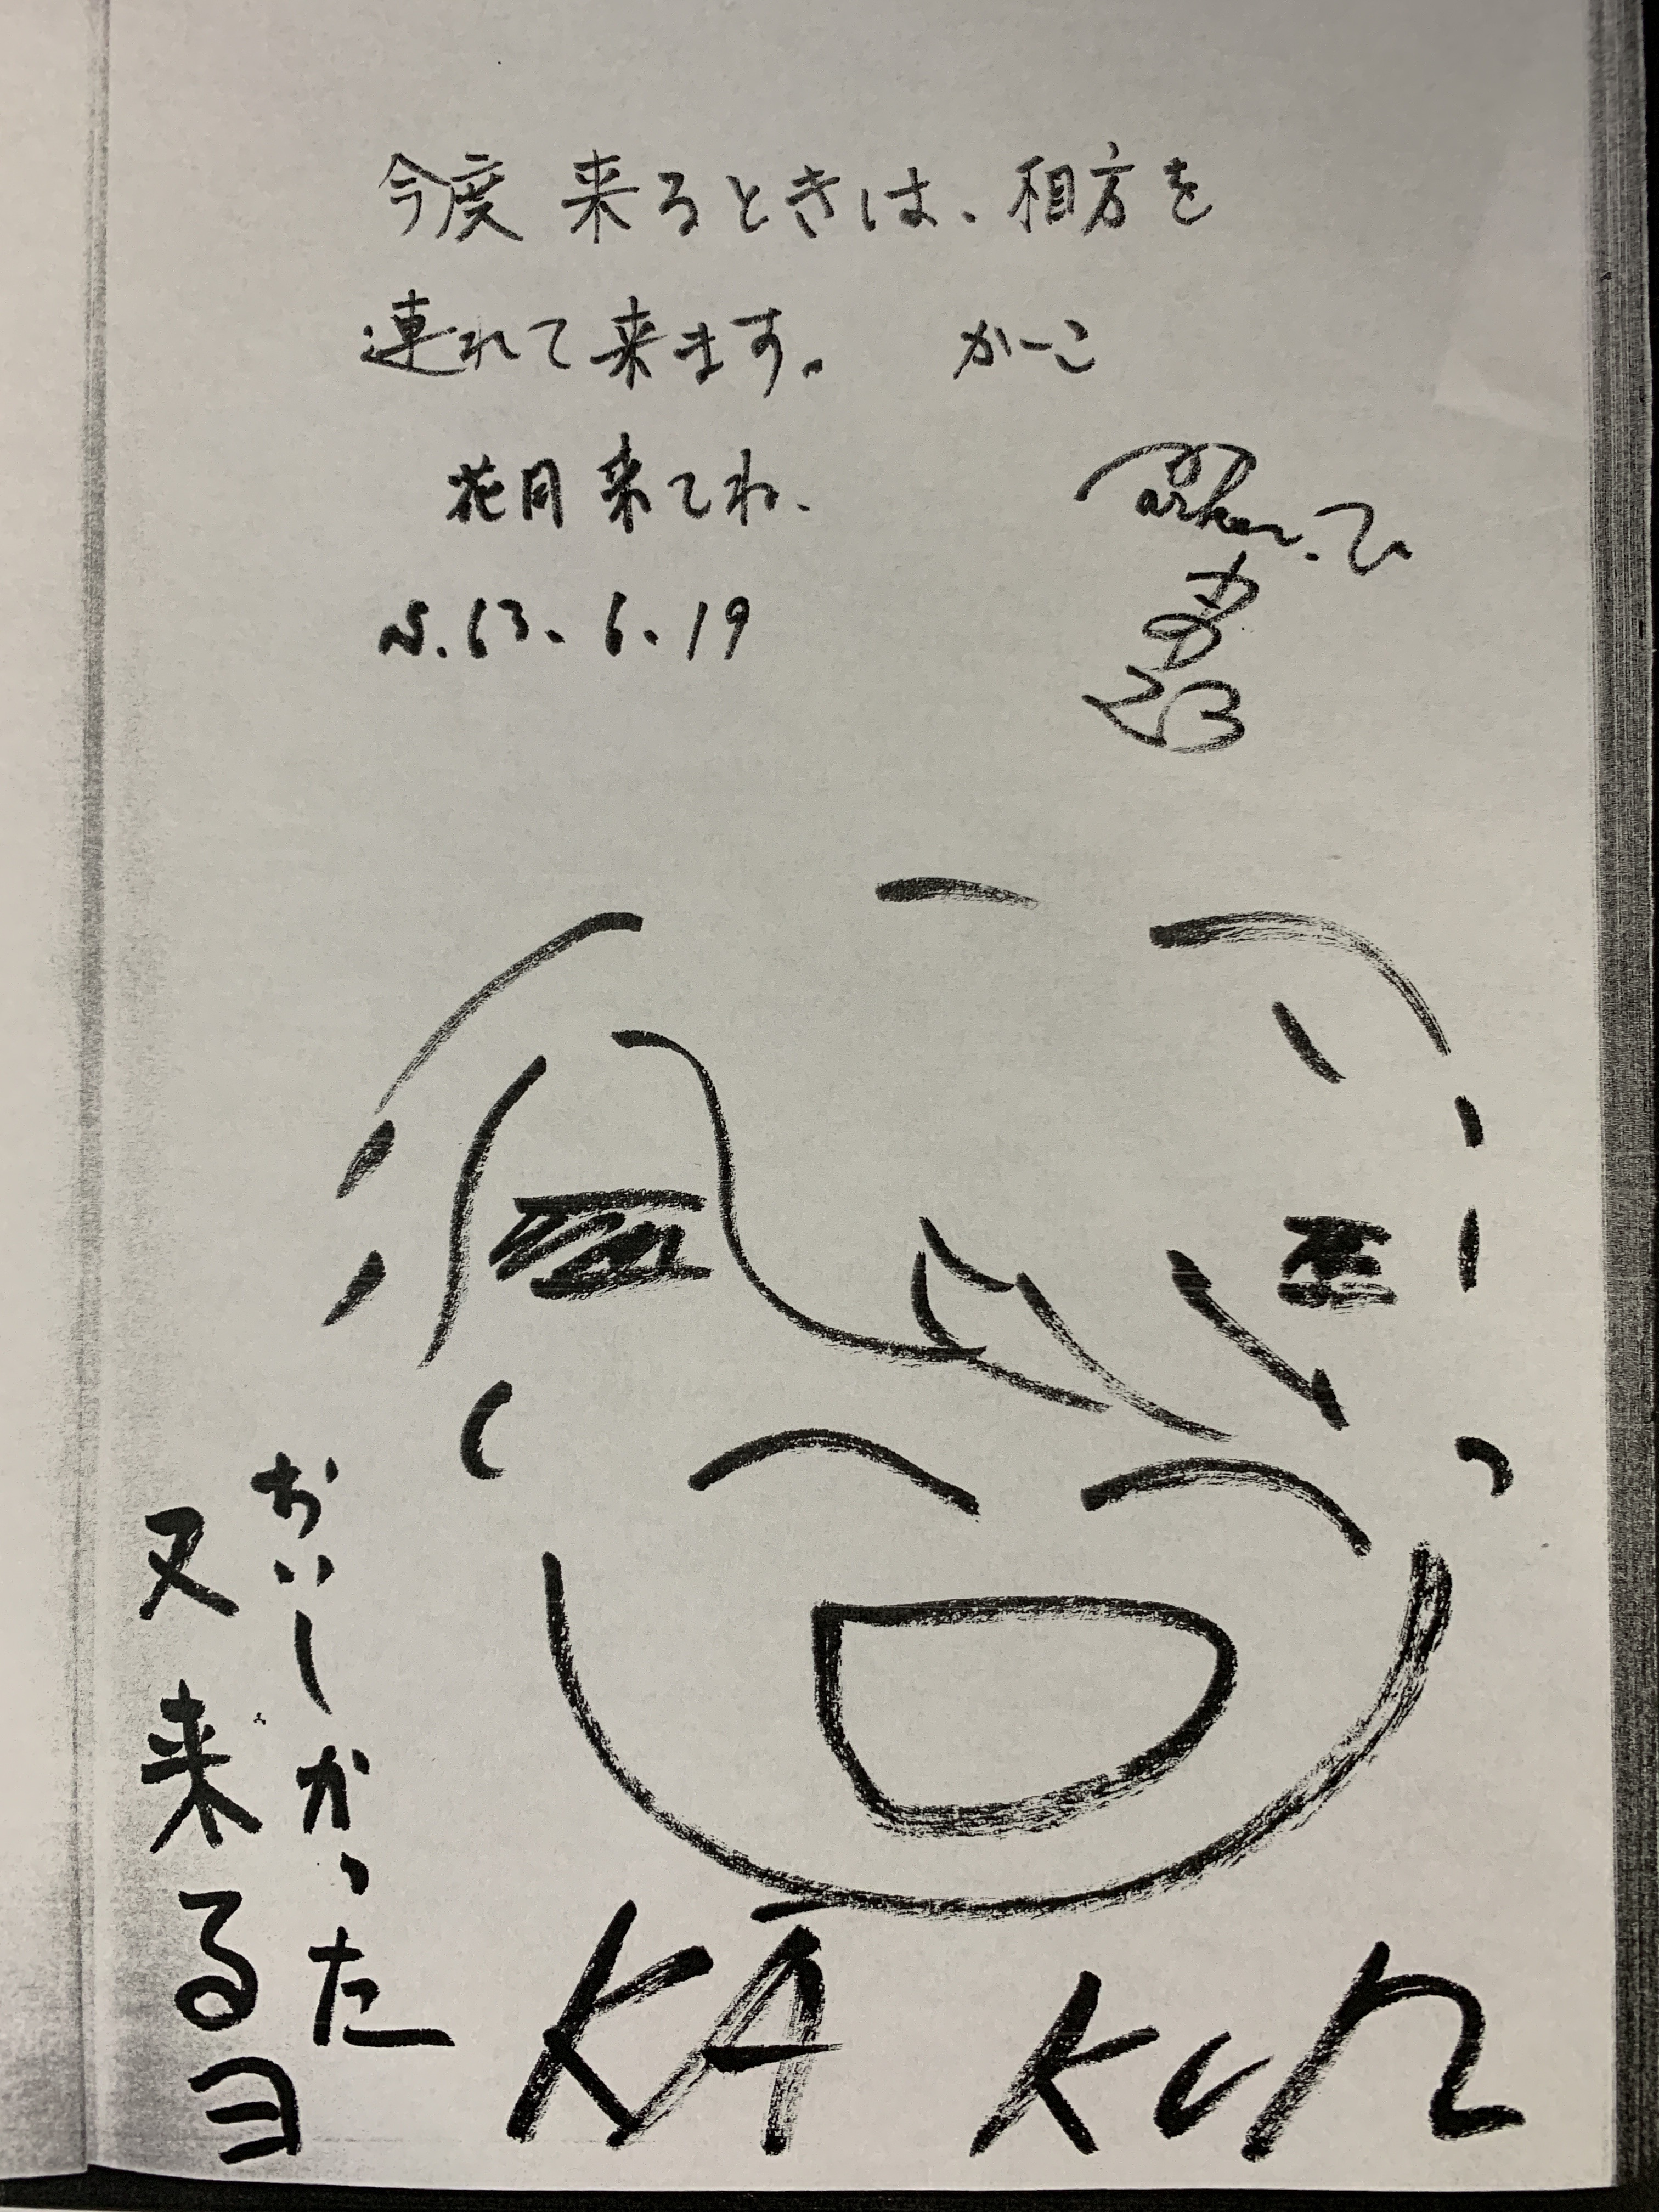 今度 来るときは、相方を
連れて来ます。 かーこ
花月 来てね、
S.63.6.19
おいしかった
又来るヨ
KA KUN